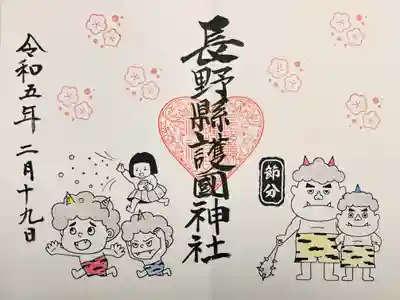 長野縣護國神社
節分
令和五年二月十九日